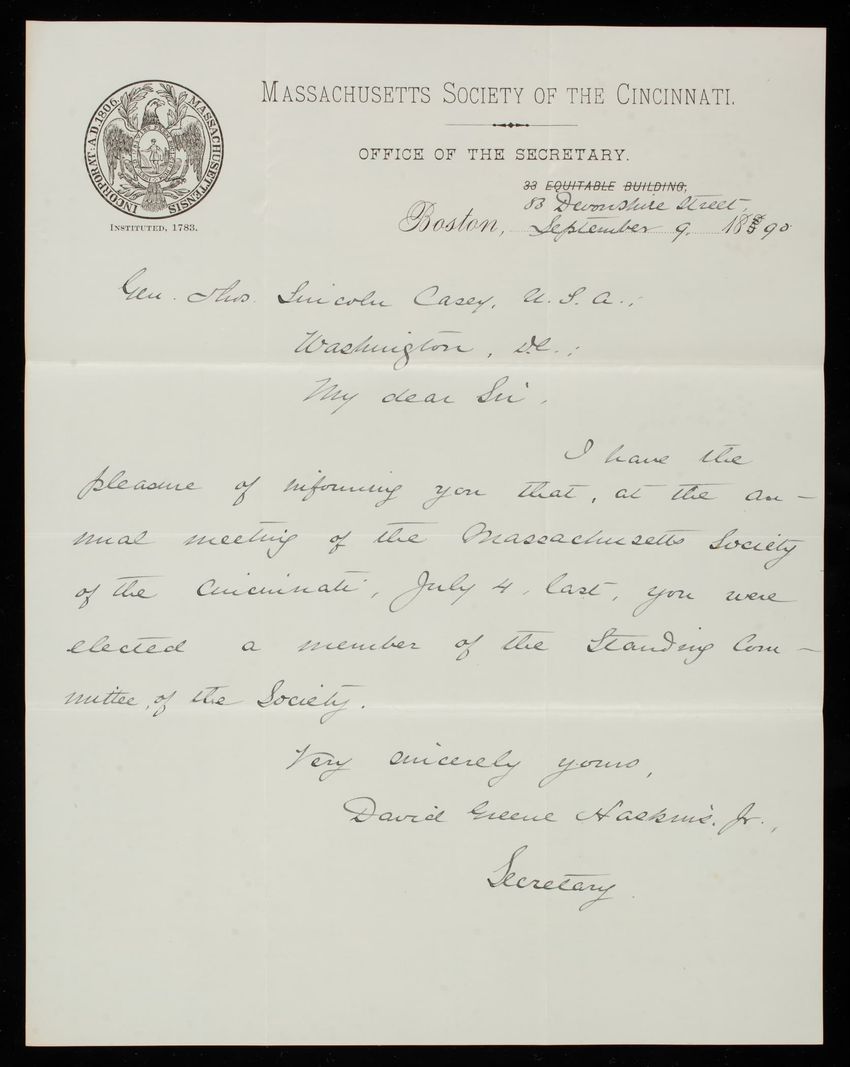 MASSACHUSETTS SOCIETY OF THE CINCINNATI.
OFFICE OF THE SECRETARY.
INCORPORAT: A.D. 1806. MASSACHUSETTENSIS
INSTITUTED, 1783.
33 EQUITABLE BUILDING,
83 Devonshire Street,
Boston, September 9. 1890
Gen. Thos. Lincoln Casey, U.S.A.;
Washington, D.C.;
My dear Sir,
I have the
pleasure of informing you that, at the an-
nual meeting of the Massachusetts Society
of the Cincinnati, July 4, last, you were
elected a member of the Standing Com-
mittee, of the Society.
Very sincerely yours,
David Greene Haskins. Jr.,
Secretary.